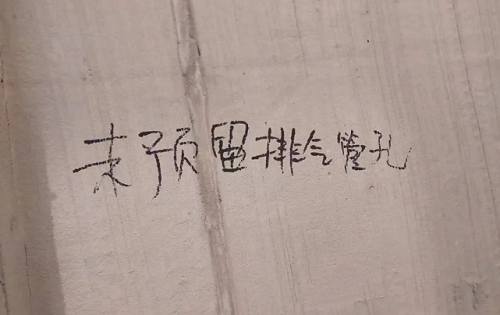 未预留排气管孔